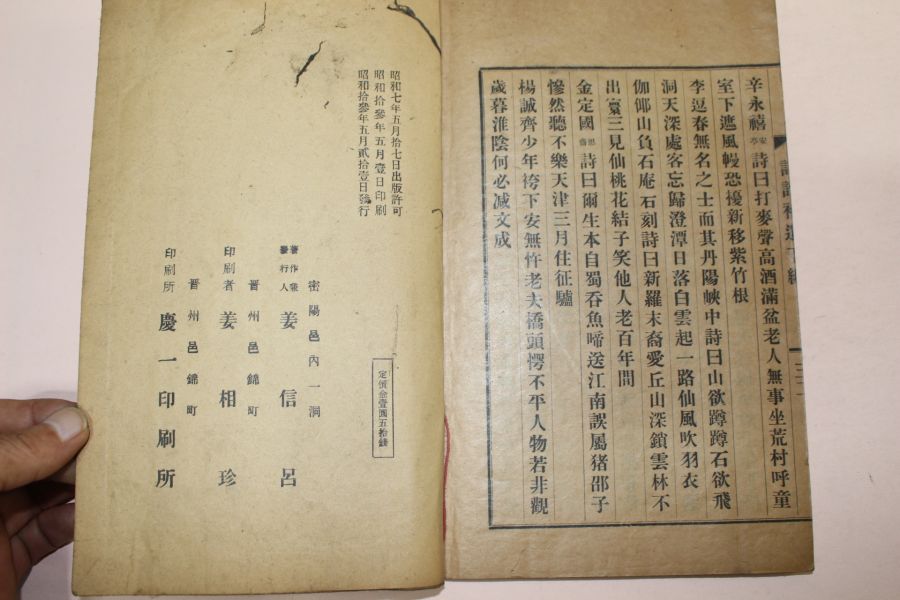 辛永禧 安亭 詩曰打麥聲高酒滿盆老人無事坐荒村呼童
室下遮風幔恐擾新移紫竹根
李逗春無名之士而其丹陽峽中詩曰山欲蹲蹲石欲飛
洞天深處客忘歸澄潭日落白雲起一路仙風吹羽衣
伽倻山負石庵石刻詩曰新羅末裔愛丘山深鎖雲林不
出寰三見仙桃花結子笑他人老百年間
金定國 思齋 詩曰爾生本自蜀吞魚啼送江南誤屬猪邵子
慘然聽不樂天津三月住征驢
楊誠齊少年袴下安無忤老夫橋頭愕不平人物若非觀
歲暮淮陰何必減文成
昭和七年五月拾七日出版許可
昭和拾參年五月壹日印刷
昭和拾參年五月貳拾壹日發行
定價金壹圓五拾錢
密陽邑內一洞
著作兼發行人 姜信呂
晋州邑錦町
印刷者 姜相珍
晋州邑錦町
印刷所 慶一印刷所